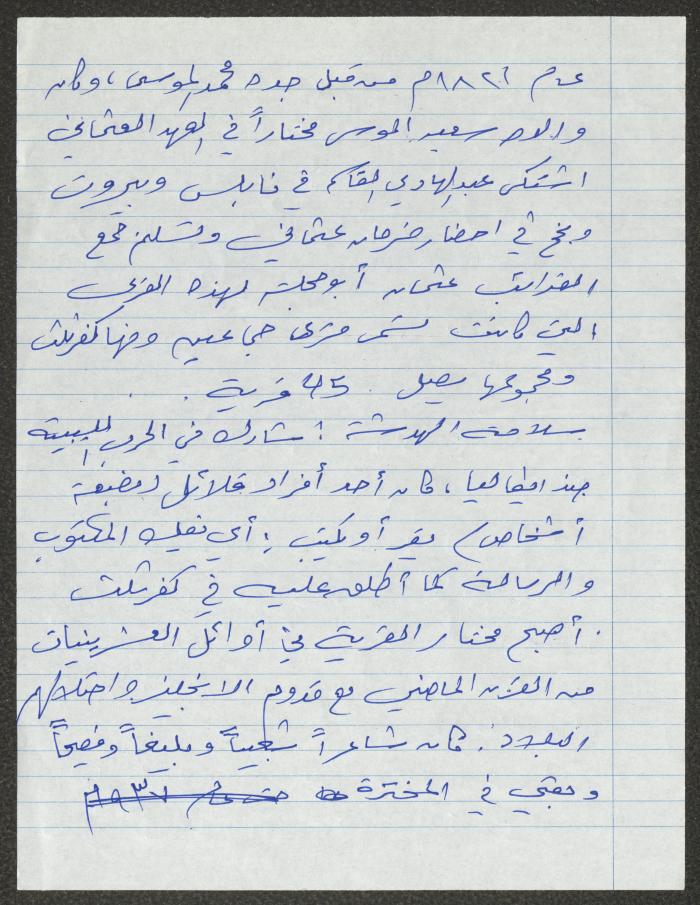 عام ١٨٢١م من قبل جده محمد الموسى، وكان
والده سعيد الموسى مختاراً في العهد العثماني
اشتكى عبد الهادي القاسم في نابلس وبيروت
ونجح في احضار فرمان عثماني وتسلم جمع
الضرائب عثمان أبو حجلة لهذه القرى
التي كانت تسمى قرى جماعين ومنها كفر ثلث
ومجموعها يصل ٢٥ قرية .
سلامة الهدشة : شارك في الحرب الليبية
ضد ايطاليا، كان أحد أفراد قلائل (بضعة
أشخاص) يقرأ ويكتب ؛ أي تفليك المكتوب
والرسالة كما أطلق عليه في كفر ثلث
. أصبح مختار القرية في أوائل العشرينيات
من القرن الماضي مع قدوم الانجليز واحتلالهم
البلاد . كان شاعراً شعبياً وبليغاً وفصيحاً
وبقي في المخترة حتى عام ١٩٣٧